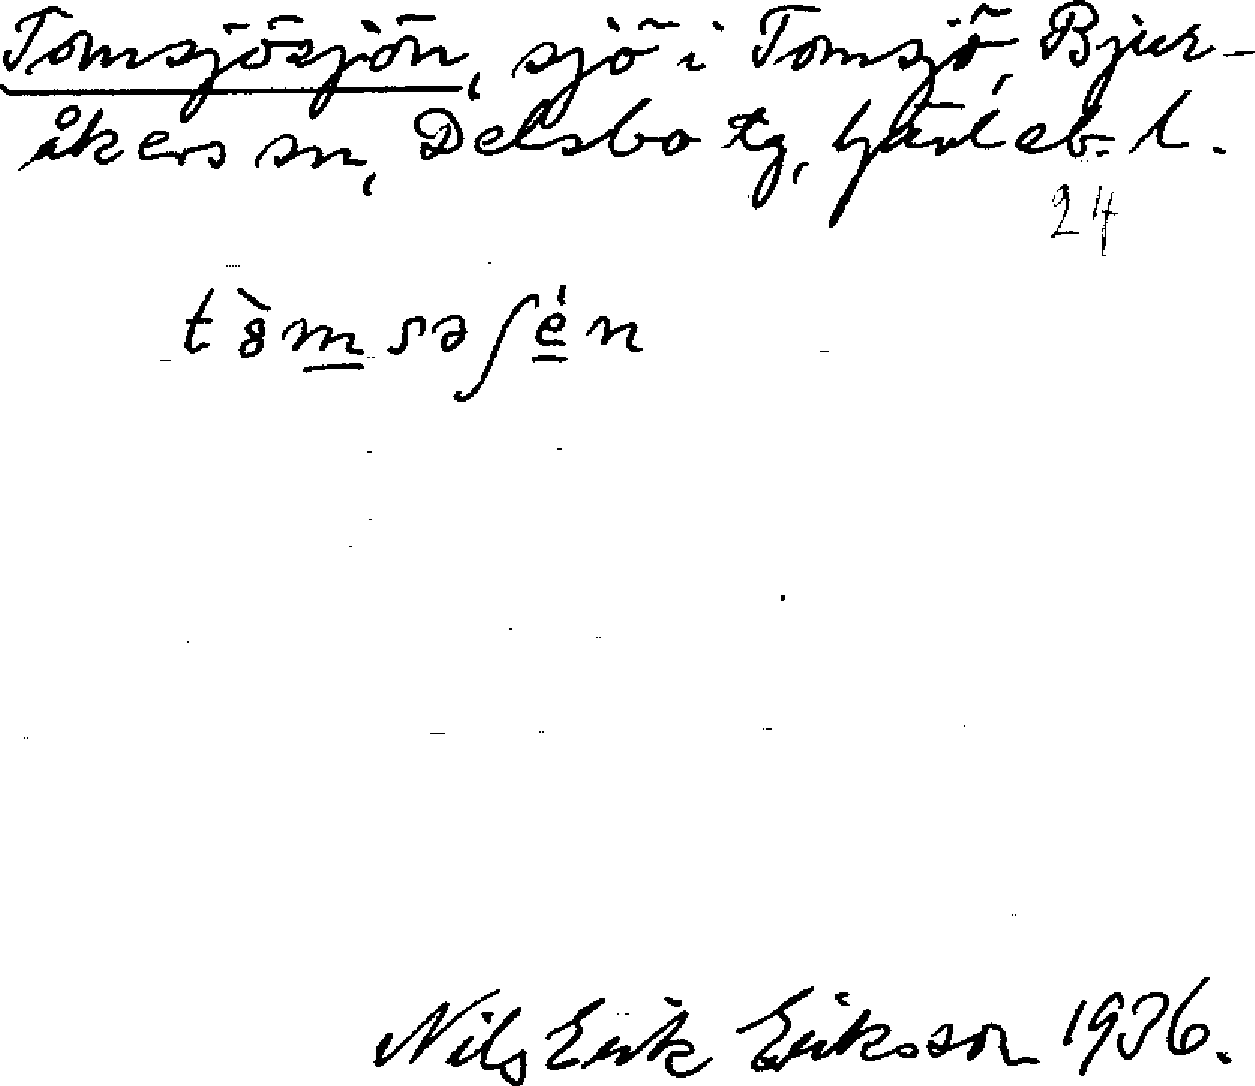 Tomsjösjön, sjö i Tomsjö, Bjur-
åkers sn, Delsbo tg, Gävleb. l.
24
Nils Erik Eriksson 1936.